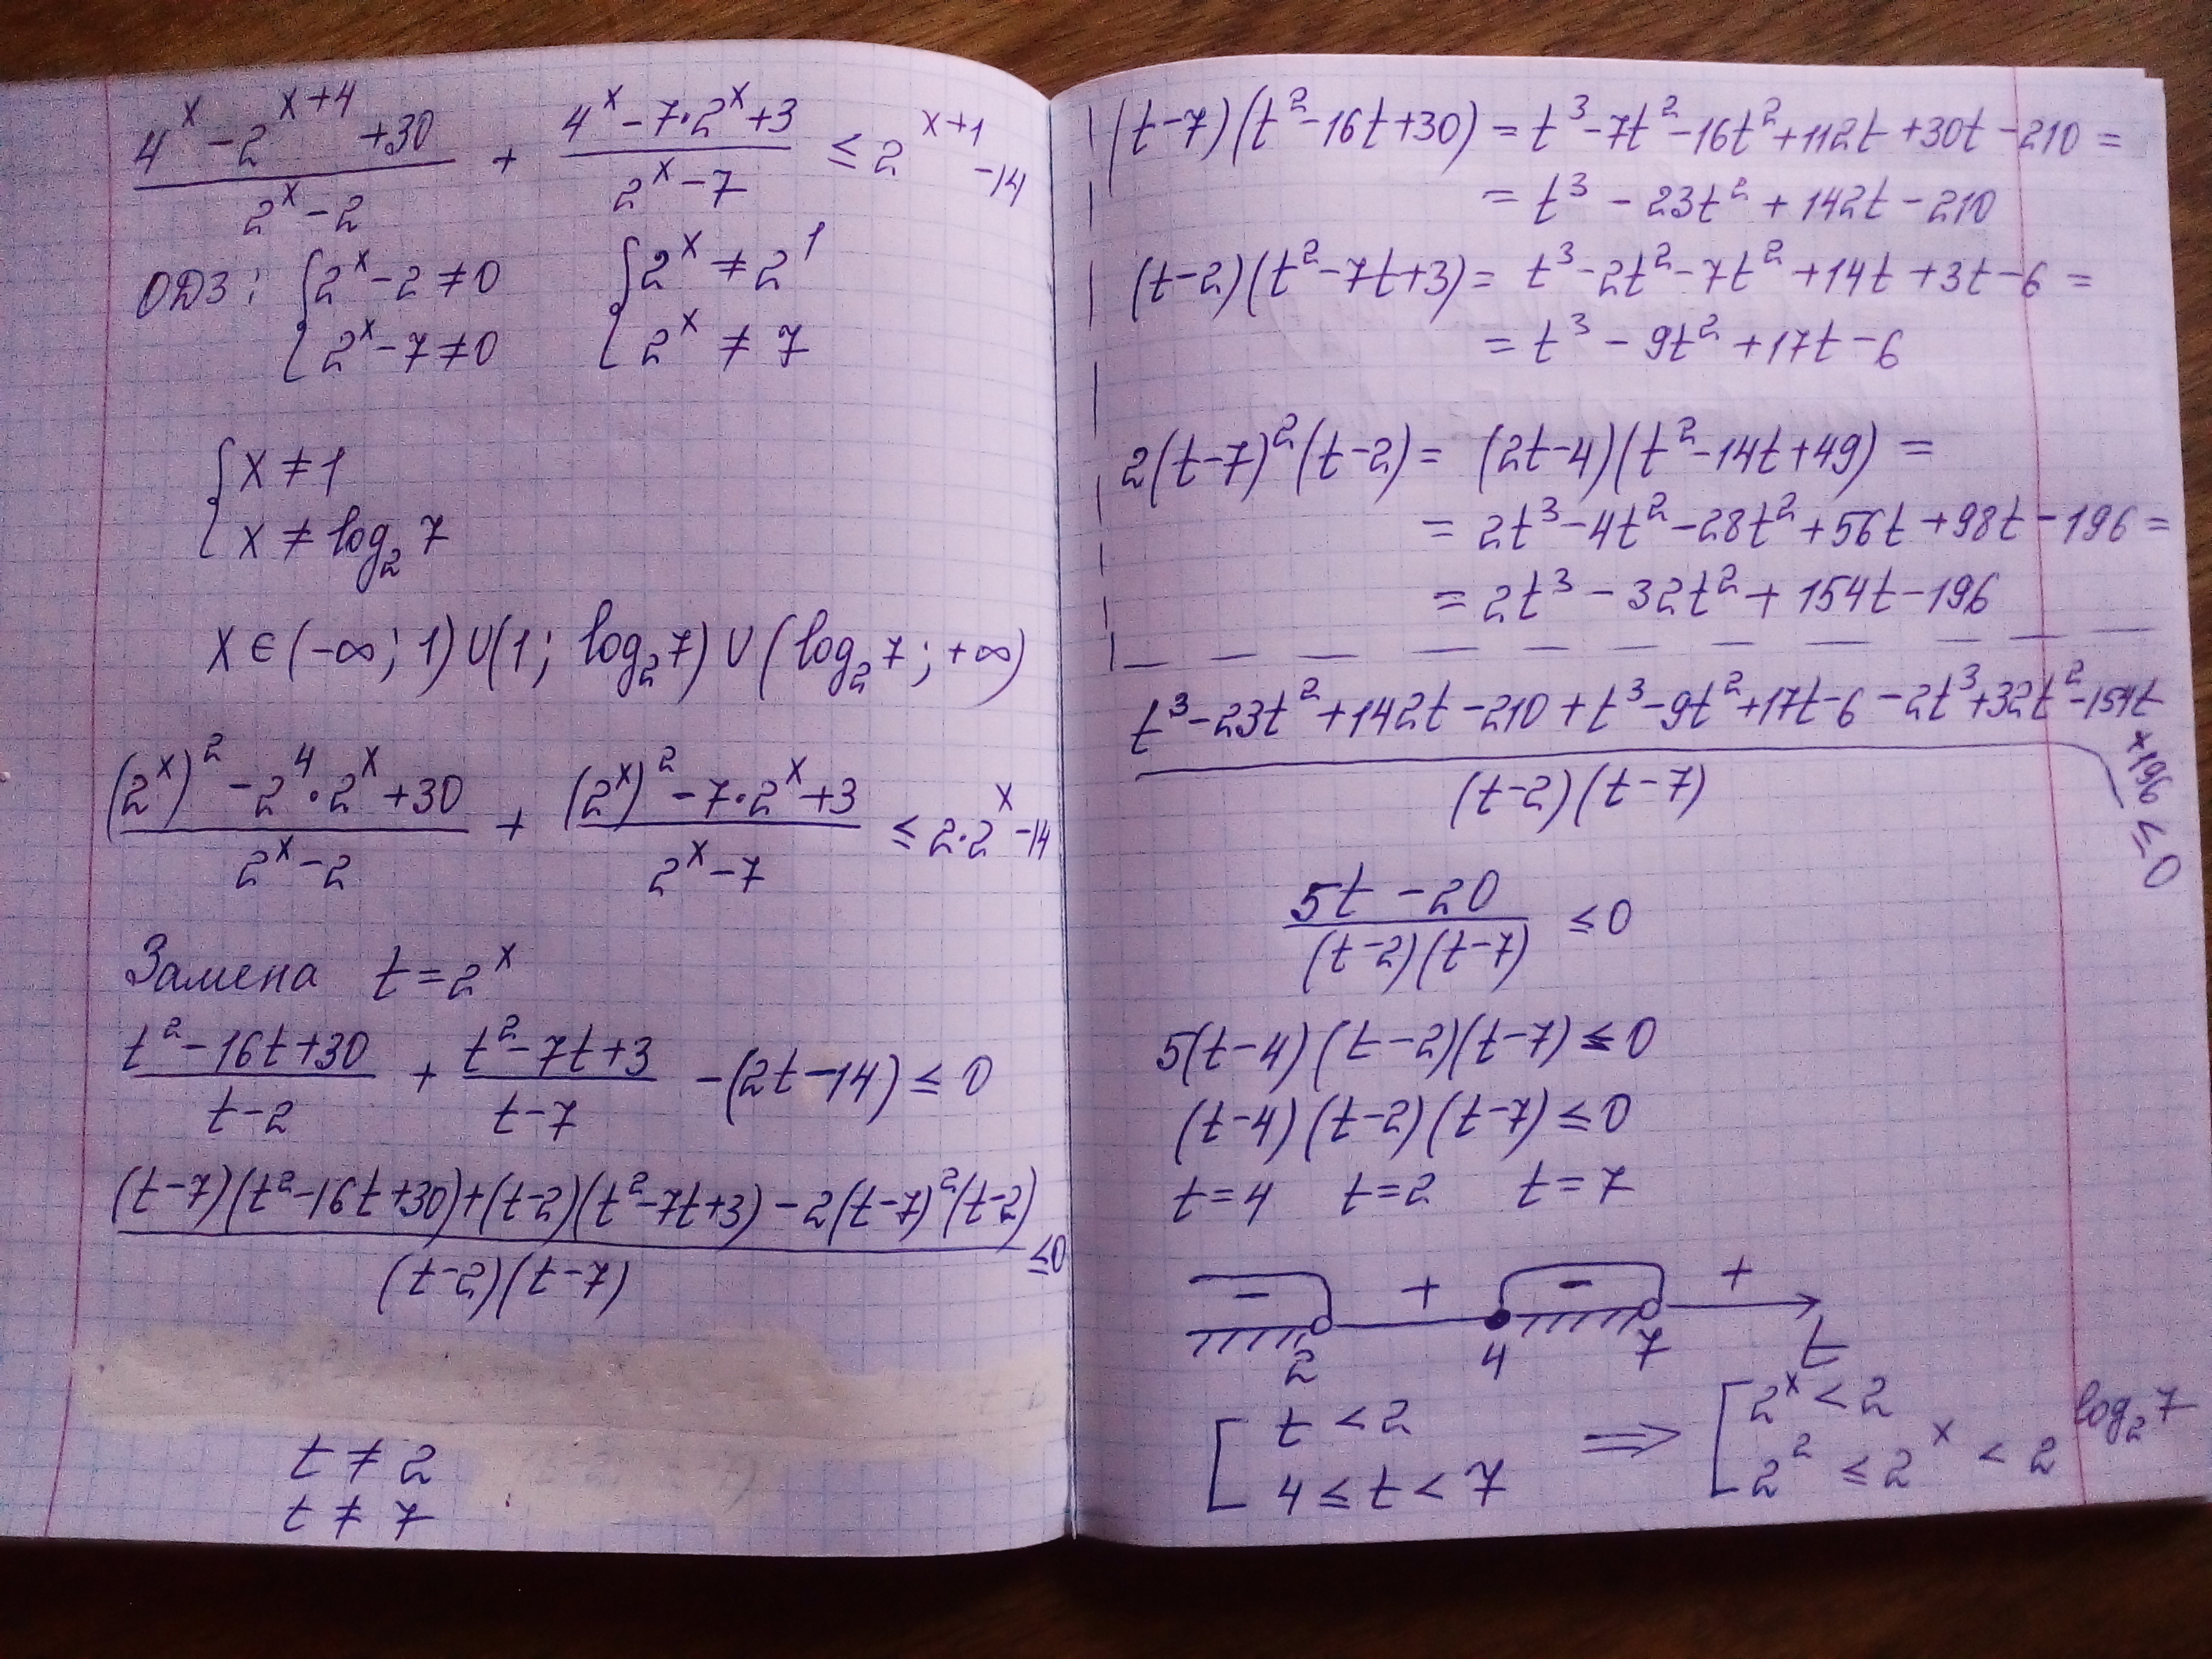 (4^x - 2^(x+4) + 30)/(2^x - 2) + (4^x - 7·2^x + 3)/(2^x - 7) ≤ 2^(x+1) - 14
ОДЗ: { 2^x - 2 ≠ 0 { 2^x ≠ 2^1
2^x - 7 ≠ 0 2^x ≠ 7
{ x ≠ 1
x ≠ log₂ 7
x ∈ (-∞; 1) ∪ (1; log₂ 7) ∪ (log₂ 7; +∞)
((2^x)² - 2⁴·2^x + 30)/(2^x - 2) + ((2^x)² - 7·2^x + 3)/(2^x - 7) ≤ 2·2^x - 14
Замена t = 2^x
(t² - 16t + 30)/(t - 2) + (t² - 7t + 3)/(t - 7) - (2t - 14) ≤ 0
((t-7)(t² - 16t + 30) + (t-2)(t² - 7t + 3) - 2(t-7)²(t-2))/((t-2)(t-7)) ≤ 0
t ≠ 2
t ≠ 7
(t-7)(t² - 16t + 30) = t³ - 7t² - 16t² + 112t + 30t - 210 =
= t³ - 23t² + 142t - 210
(t-2)(t² - 7t + 3) = t³ - 2t² - 7t² + 14t + 3t - 6 =
= t³ - 9t² + 17t - 6
2(t-7)²(t-2) = (2t-4)(t² - 14t + 49) =
= 2t³ - 4t² - 28t² + 56t + 98t - 196 =
= 2t³ - 32t² + 154t - 196
(t³ - 23t² + 142t - 210 + t³ - 9t² + 17t - 6 - 2t³ + 32t² - 154t + 196)/((t-2)(t-7)) ≤ 0
(5t - 20)/((t-2)(t-7)) ≤ 0
5(t-4)(t-2)(t-7) ≤ 0
(t-4)(t-2)(t-7) ≤ 0
t = 4 t = 2 t = 7
- + - +
2 4 7 t
[ t < 2 ⟹ [ 2^x < 2
4 ≤ t < 7 2² ≤ 2^x < 2^(log₂ 7)